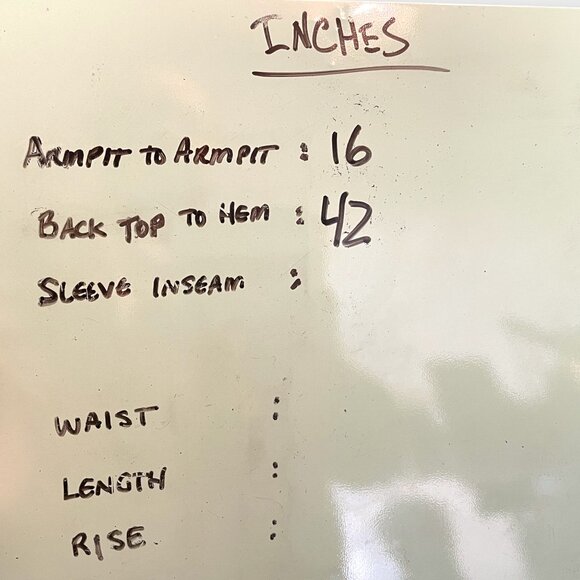 INCHES
ARMPIT TO ARMPIT : 16
BACK TOP TO HEM : 42
SLEEVE INSEAM :
WAIST :
LENGTH :
RISE :